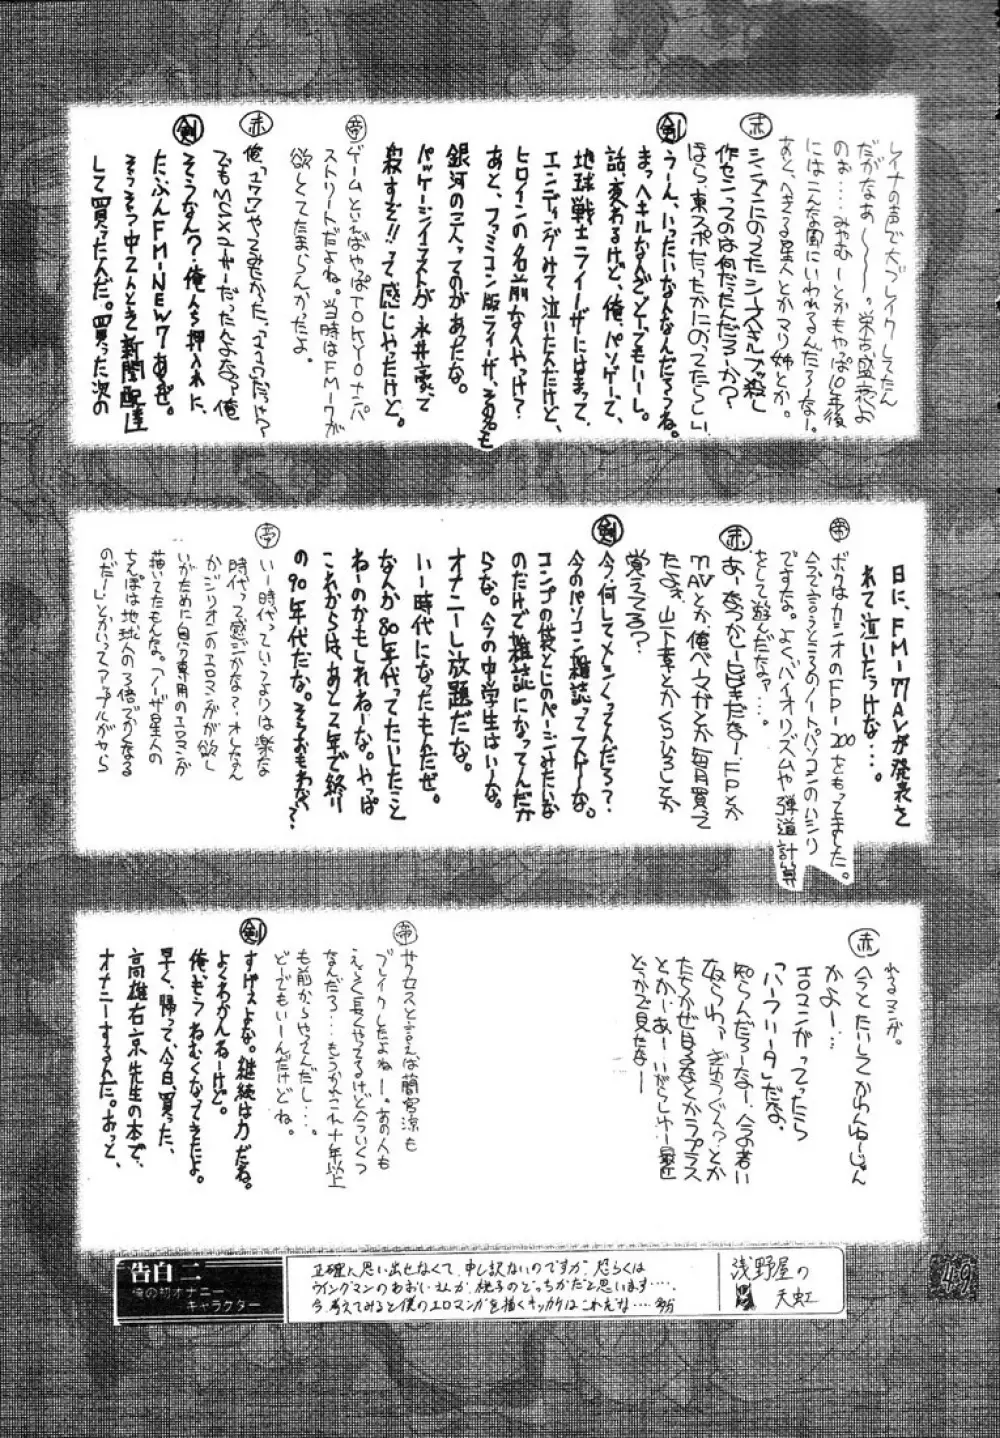 レイナの声で大ブレイクしてたん
だがなあ〜〜〜。栄古盛衰よ
のぉ…みやむーとかもやっぱ10年後
にはこんな風にいわれるんだろーなー。
あと、へきる星人とかマリ姉とか。
赤
作セシってのは何だったんだろうか?
ほら、東スポだったかにのってたらしい。
剣
うーん、いったいなんなんだろうね。
まっヘキルなんざどーでもいーし。
話、変わるけど、俺、パソゲーで、
地球戦士ライーザにはまって、
エンディングみて泣いたんだけど、
ヒロインの名前なんやっけ?
あと、ファミコン版ライーザ、その名も
銀河の三人ってのがあったな。
パッケージイラストが永井豪で
殺すぞ!!って感じやったけど。
帝
ゲームといえばやっぱTOKYOナンパ
ストリートだよね。当時はFM-7が
欲しくてたまらんかったよ。
赤
でもMSXユーザーだったんよなっ俺
剣
そうなん?俺んち押入れに、
たぶんFM-NEW7あるぜ。
して買ったんだ。買った次の
日に、FM-77AVが発表さ
れて泣いたっけな…。
帝
ボクはカシオのFP-200をもってました。
今で言うところのノートパソコンのハシリ
ですな。よくバイオリズムや弾道計算
をして遊んだなァ…。
赤
あーなつかしーひびきだなー。FPとか
77AVとか、俺ベーマガとか毎月買って
たよ。山下章とかくらひろしとか
覚えてる?
剣
今、何してメシくってんだろう?
今のパソコン雑誌ってスゲーな。
コンプの袋とじのページみたいな
のだけで雑誌になってんだか
らな。今の中学生はいーな。
オナニーし放題だな。
いー時代になったもんだぜ。
なんか80年代ってたいしたこと
ねーのかもしれねーな。やっぱ
これからは、あと二年で終り
の90年代だな。そうおもわない?
帝
いー時代っていうよりは楽な
時代って感じかな?オレなん
かジリオンのエロマンガが欲し
いがために自分専用のエロマンガ
描いてたもんな。「ノーザ星人の
ちんぽは地球人の3倍ぐらいある
のだー!」とかいってアップルがヤら
れるマンガ。
赤
今とたいしてかわんねーじゃん
かよー…
エロマンガってったら
「ハーフリータ」だな。
知らんだろーなー、今の若い
とかー。あーいがらしゆー最近
どっかで見たなー
帝
サクセスと言えば蘭宮涼も
ブレイクしたよねー。あの人も
えらく長くやってるけど今いくつ
なんだろ…もうかれこれ十年以上
も前からやってんだし…。
どーでもいーんだけどね。
剣
すげェよな。継続は力だね。
よくわかんねーけど。
俺もうねむくなってきたよ。
早く、帰って、今日、買った、
高雄右京先生の本で、
オナニーするんだ。おっと、
告白二
俺の初オナニー
キャラクター
正確に思い出せなくて、申し訳ないのですが、恐らくは
ウイングマンのあおいさんか、桃子のどっちかだと思います……
今、考えてみると僕のエロマンガを描くキッカケはこれだな……
浅野屋の
天虹
49